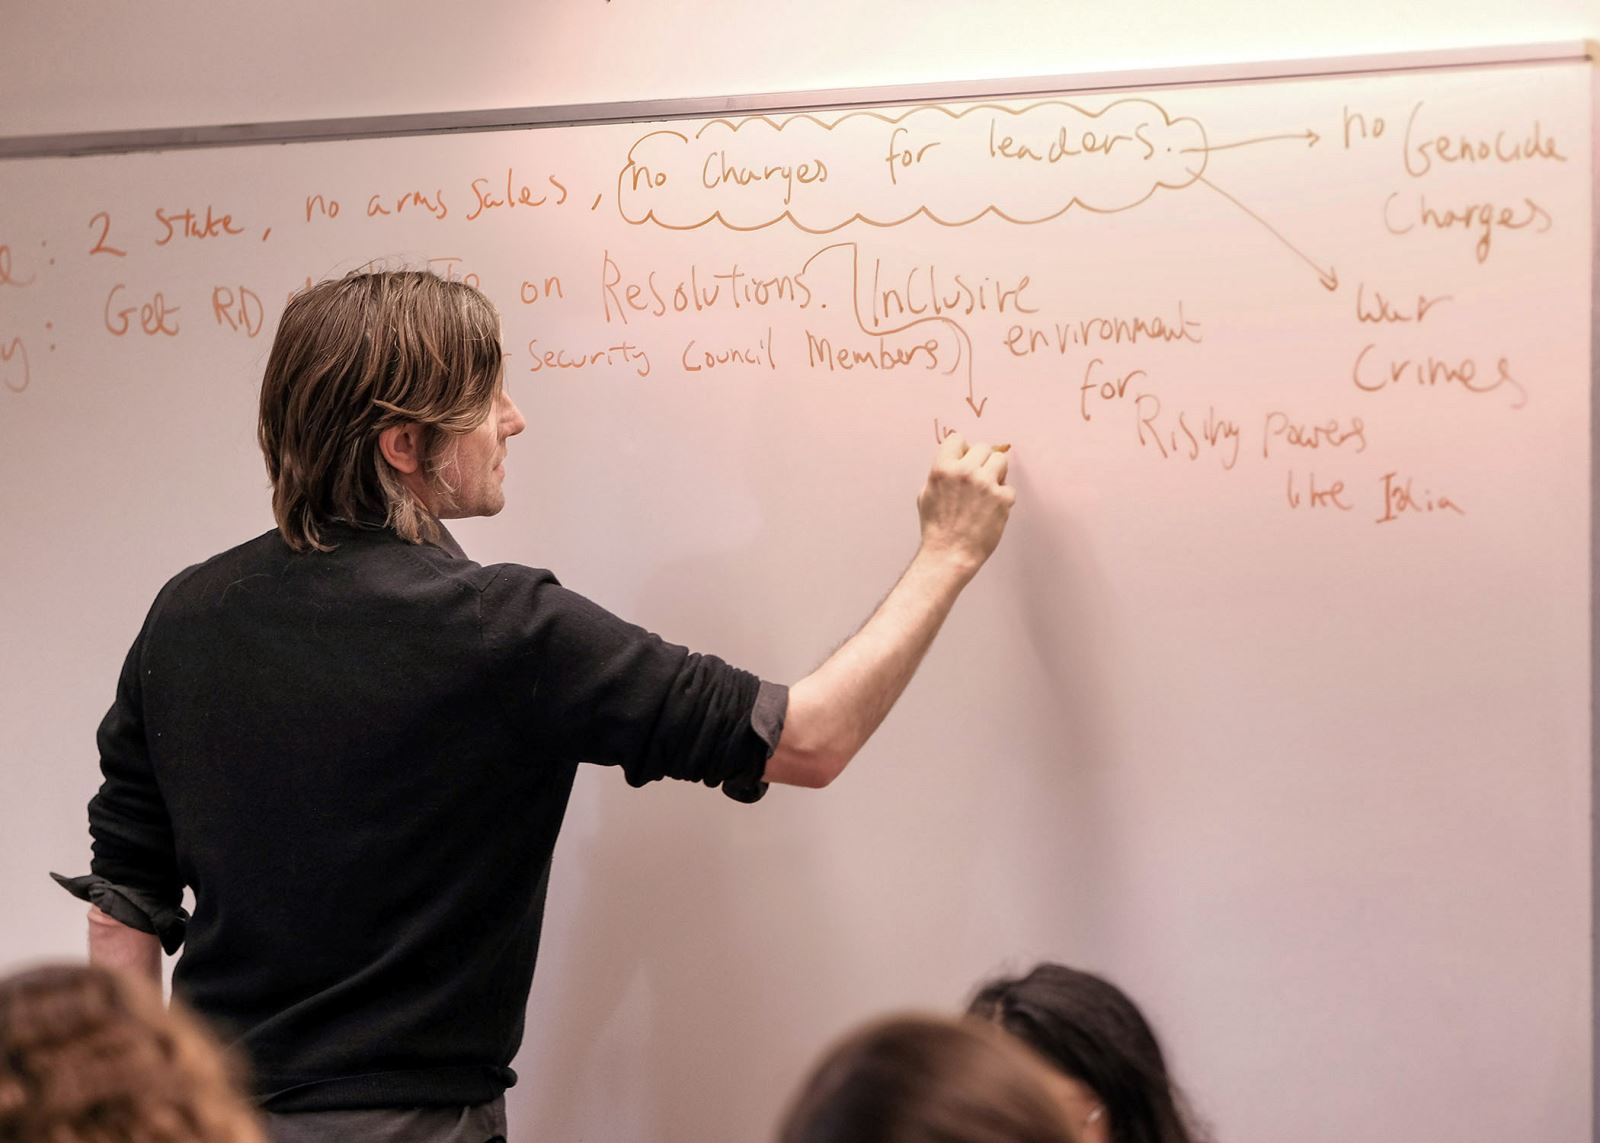 : 2 State, no arms sales, no Charges for leaders.
no Genocide
Charges
: Get RID on Resolutions. Inclusive
environment
for
Rising powers
like India
Security Council Members)
War
Crimes
In